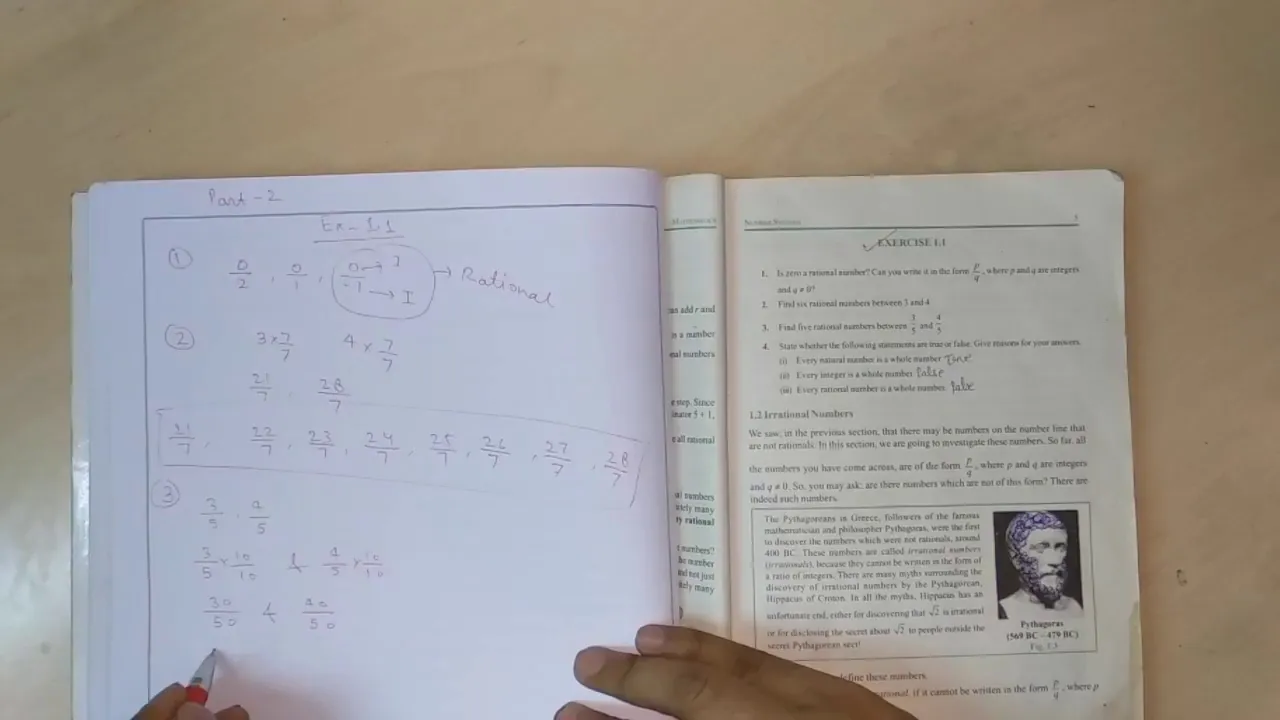 Part - 2
Ex - 1.1
① 0/2 , 0/1 , 0/-1 → I → I → Rational
② 3 × 7/7 4 × 7/7
21/7 , 28/7
21/7 , 22/7 , 23/7 , 24/7 , 25/7 , 26/7 , 27/7 , 28/7
③ 3/5 , 4/5
3/5 × 10/10 & 4/5 × 10/10
30/50 & 40/50
MATHEMATICS
an add r and
a number
nal numbers
e step. Since
inator 5 + 1,
e all rational
al numbers
itely many
ry rational
t numbers?
he number
and not just
itely many
NUMBER SYSTEMS 5
EXERCISE 1.1
1. Is zero a rational number? Can you write it in the form p/q, where p and q are integers
and q ≠ 0?
2. Find six rational numbers between 3 and 4.
3. Find five rational numbers between 3/5 and 4/5.
4. State whether the following statements are true or false. Give reasons for your answers.
(i) Every natural number is a whole number. True
(ii) Every integer is a whole number. false
(iii) Every rational number is a whole number. false
1.2 Irrational Numbers
We saw, in the previous section, that there may be numbers on the number line that
are not rationals. In this section, we are going to investigate these numbers. So far, all
the numbers you have come across, are of the form p/q, where p and q are integers
and q ≠ 0. So, you may ask: are there numbers which are not of this form? There are
indeed such numbers.
The Pythagoreans in Greece, followers of the famous
mathematician and philosopher Pythagoras, were the first
to discover the numbers which were not rationals, around
400 BC. These numbers are called irrational numbers
(irrationals), because they cannot be written in the form of
a ratio of integers. There are many myths surrounding the
discovery of irrational numbers by the Pythagorean,
Hippacus of Croton. In all the myths, Hippacus has an
unfortunate end, either for discovering that √2 is irrational
or for disclosing the secret about √2 to people outside the
secret Pythagorean sect!
Pythagoras
(569 BC – 479 BC)
Fig. 1.3
define these numbers.
rational, if it cannot be written in the form p/q, where p